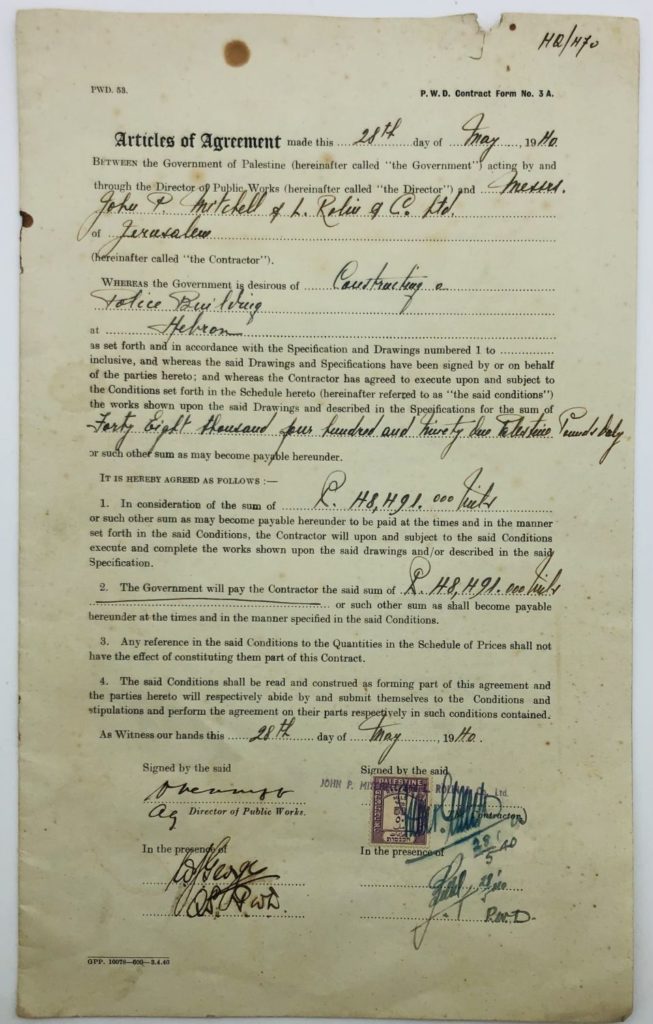 HQ/470
PWD. 53.
P.W.D. Contract Form No. 3 A.
Articles of Agreement made this 28th day of May, 1940.
BETWEEN the Government of Palestine (hereinafter called "the Government") acting by and
through the Director of Public Works (hereinafter called "the Director") and Messrs.
John P. Mitchell & L. Rolin & C. Ltd.
of Jerusalem
(hereinafter called "the Contractor").
WHEREAS the Government is desirous of Constructing a
Police Building
at Hebron
as set forth and in accordance with the Specification and Drawings numbered 1 to
inclusive, and whereas the said Drawings and Specifications have been signed by or on behalf
of the parties hereto; and whereas the Contractor has agreed to execute upon and subject to
the Conditions set forth in the Schedule hereto (hereinafter referred to as "the said conditions")
the works shown upon the said Drawings and described in the Specifications for the sum of
Forty Eight thousand four hundred and Ninety one Palestine Pounds only
or such other sum as may become payable hereunder.
IT IS HEREBY AGREED AS FOLLOWS :—
1. In consideration of the sum of £. 48,491.000 mils
or such other sum as may become payable hereunder to be paid at the times and in the manner
set forth in the said Conditions, the Contractor will upon and subject to the said Conditions
execute and complete the works shown upon the said drawings and/or described in the said
Specification.
2. The Government will pay the Contractor the said sum of £. 48,491.000 mils
or such other sum as shall become payable
hereunder at the times and in the manner specified in the said Conditions.
3. Any reference in the said Conditions to the Quantities in the Schedule of Prices shall not
have the effect of constituting them part of this Contract.
4. The said Conditions shall be read and construed as forming part of this agreement and
the parties hereto will respectively abide by and submit themselves to the Conditions and
stipulations and perform the agreement on their parts respectively in such conditions contained.
As Witness our hands this 28th day of May, 1940.
Signed by the said
Ag Director of Public Works.
In the presence of
George
QS. P.W.D.
Signed by the said
JOHN P. MITCHELL Ltd.
PALESTINE
Contractor
28/5/40
In the presence of
P.W.D.
GPP. 10078—600—3.4.40